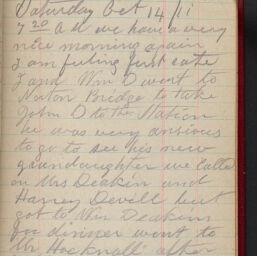 Saturday Oct 14/11
7 20 AM we have a very
nice morning again
I am feeling first rate
I and Wm D went to
Newton Bridge to take
John D to the Station
he was very anxious
to go to see his new
grandaughter we called
on Mrs Deakin and
Harvey Devill but
got to Wm Deakins
for dinner went to
Mr Hocknall after